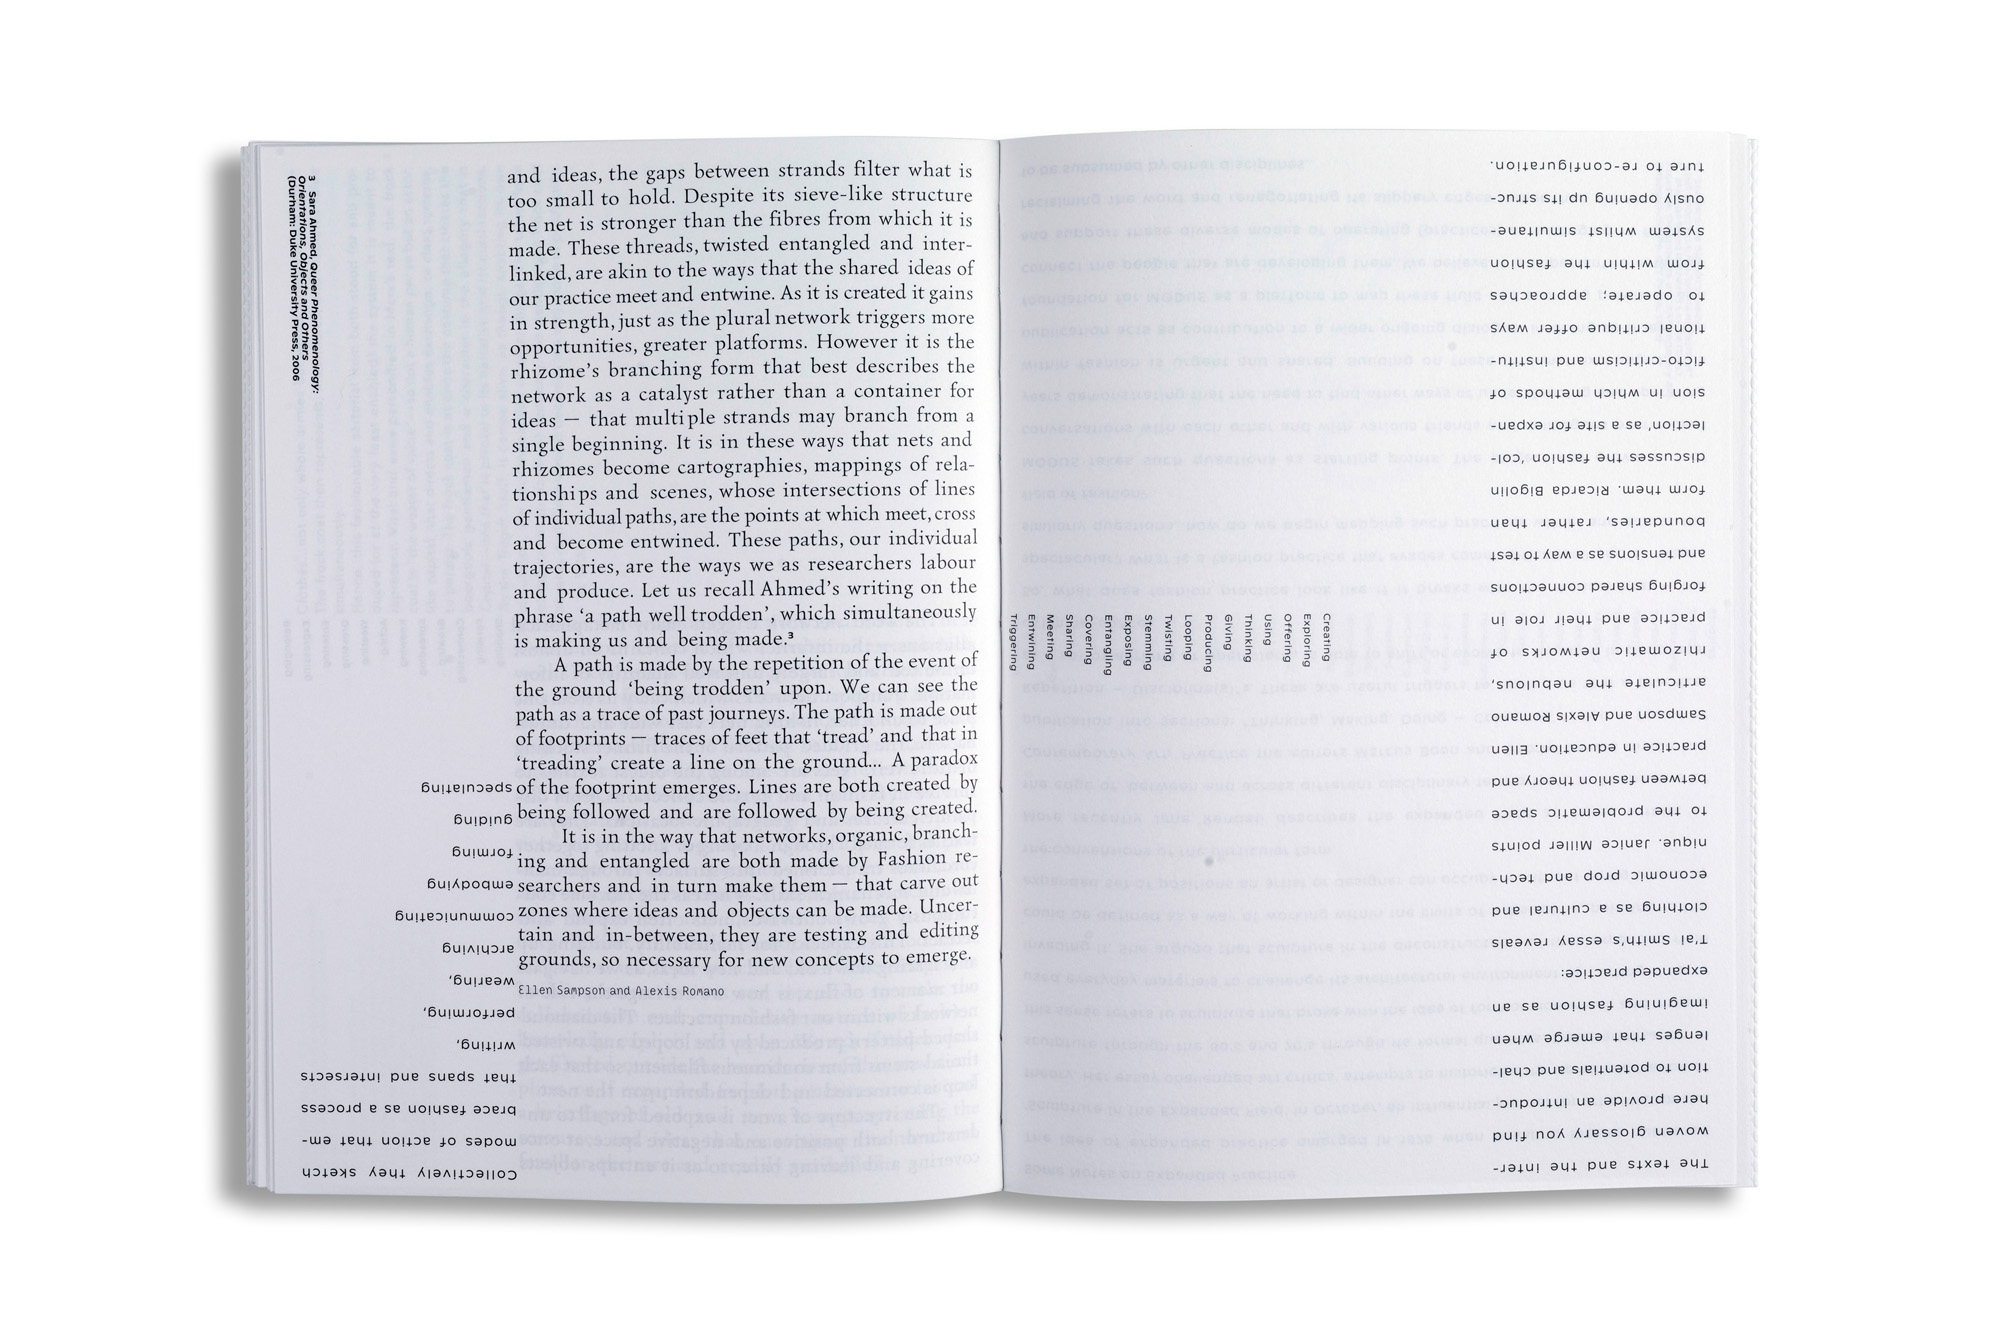 and ideas, the gaps between strands filter what is
too small to hold. Despite its sieve-like structure
the net is stronger than the fibres from which it is
made. These threads, twisted entangled and inter-
linked, are akin to the ways that the shared ideas of
our practice meet and entwine. As it is created it gains
in strength, just as the plural network triggers more
opportunities, greater platforms. However it is the
rhizome’s branching form that best describes the
network as a catalyst rather than a container for
ideas — that multiple strands may branch from a
single beginning. It is in these ways that nets and
rhizomes become cartographies, mappings of rela-
tionships and scenes, whose intersections of lines
of individual paths, are the points at which meet, cross
and become entwined. These paths, our individual
trajectories, are the ways we as researchers labour
and produce. Let us recall Ahmed’s writing on the
phrase ‘a path well trodden’, which simultaneously
is making us and being made.³
A path is made by the repetition of the event of
the ground ‘being trodden’ upon. We can see the
path as a trace of past journeys. The path is made out
of footprints — traces of feet that ‘tread’ and that in
‘treading’ create a line on the ground... A paradox
of the footprint emerges. Lines are both created by
being followed and are followed by being created.
It is in the way that networks, organic, branch-
ing and entangled are both made by Fashion re-
searchers and in turn make them — that carve out
zones where ideas and objects can be made. Uncer-
tain and in-between, they are testing and editing
grounds, so necessary for new concepts to emerge.
Ellen Sampson and Alexis Romano
3 Sara Ahmed, Queer Phenomenology:
Orientations, Objects and Others
(Durham: Duke University Press, 2006
Creating
Exploring
Offering
Using
Thinking
Giving
Producing
Looping
Twisting
Stemming
Exposing
Entangling
Covering
Sharing
Meeting
Entwining
Triggering
The texts and the inter-
woven glossary you find
here provide an introduc-
tion to potentials and chal-
lenges that emerge when
imagining fashion as an
expanded practice:
T’ai Smith’s essay reveals
clothing as a cultural and
economic prop and tech-
nique. Janice Miller points
to the problematic space
between fashion theory and
practice in education. Ellen
Sampson and Alexis Romano
articulate the nebulous,
rhizomatic networks of
practice and their role in
forging shared connections
and tensions as a way to test
boundaries, rather than
form them. Ricarda Bigolin
discusses the fashion ‘col-
lection’ as a site for expan-
sion in which methods of
ficto-criticism and institu-
tional critique offer ways
to operate; approaches
from within the fashion
system whilst simultane-
ously opening up its struc-
ture to re-configuration.
Collectively they sketch
modes of action that em-
brace fashion as a process
that spans and intersects
writing,
performing,
wearing,
archiving
communicating
embodying
forming
guiding
speculating